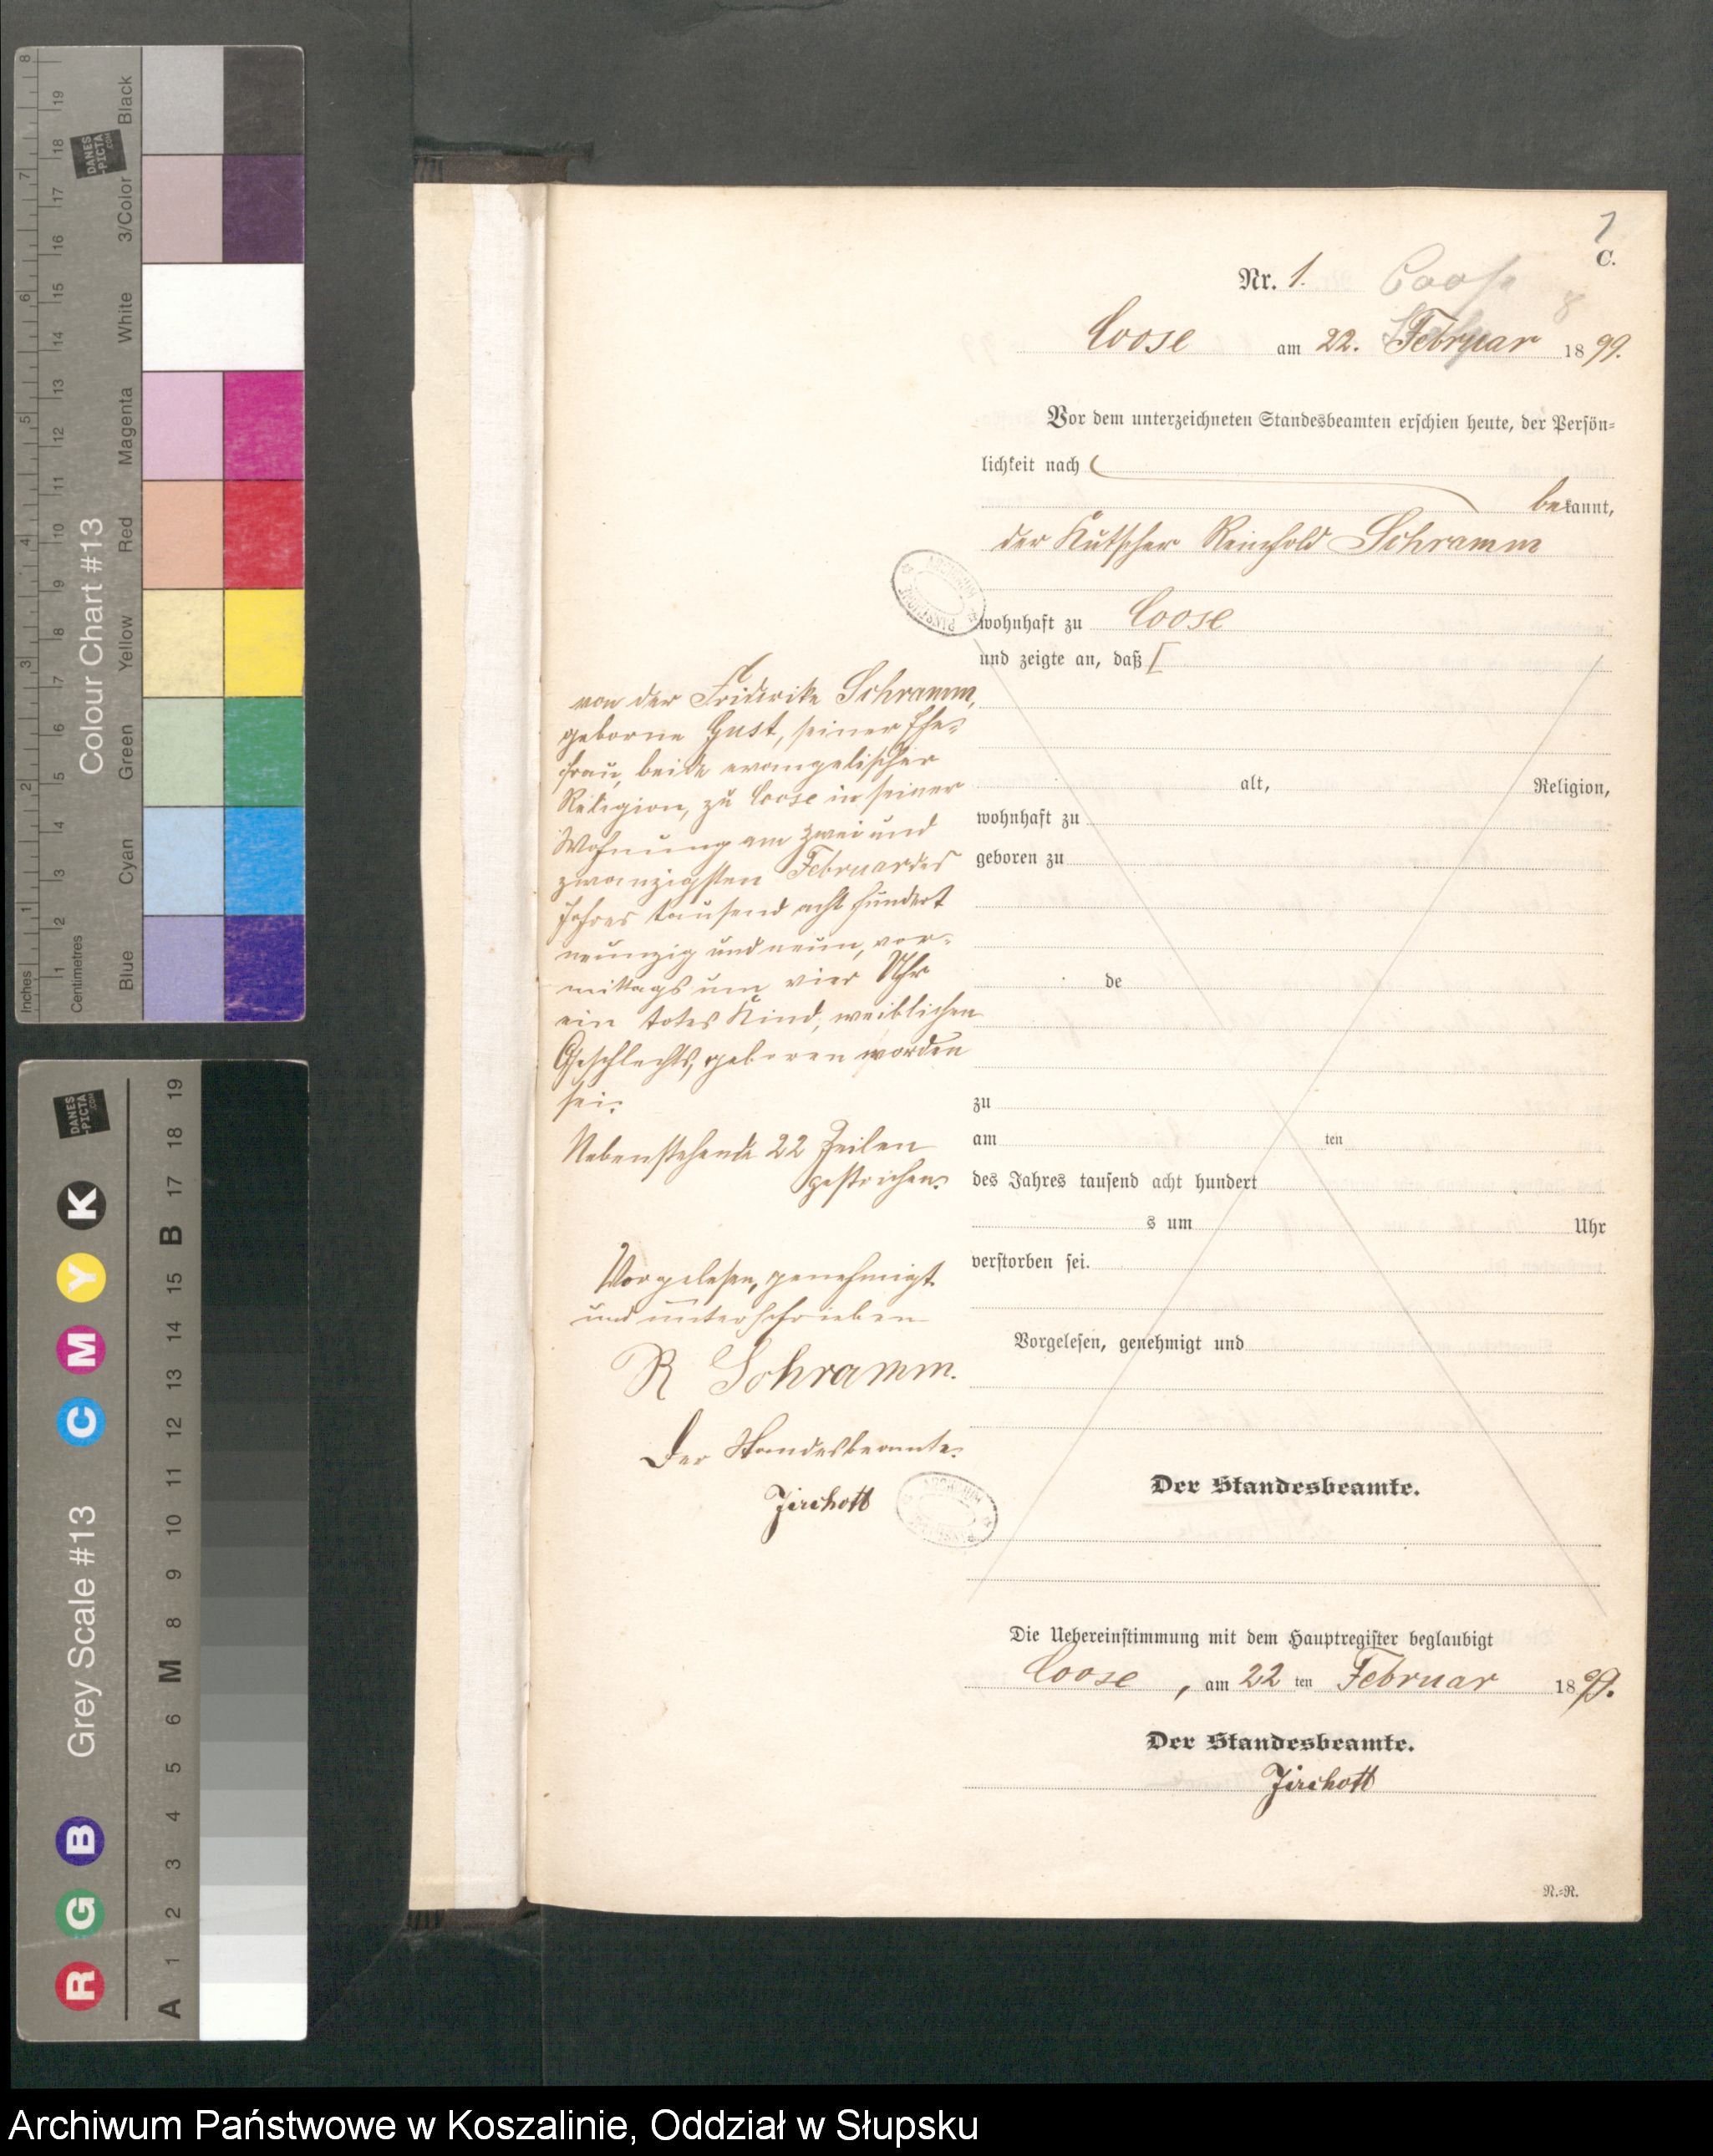 1
C.
Nr. 1. Coose
8
Coose am 22. Februar 1899.
Vor dem unterzeichneten Standesbeamten erschien heute, der Persön-
lichkeit nach
bekannt,
der Kutscher Reinhold Schramm
wohnhaft zu Coose
und zeigte an, daß [
von der Friderike Schramm,
geborne Gust, seiner Ehe-
frau, beide evangelischer
Religion, zu Coose in seiner
Wohnung am zwei und
zwanzigsten Februar des
Jahres tausend acht hundert
neunzig und neun, vor-
mittags um vier Uhr
ein totes Kind, weiblichen
Geschlechts, geboren worden
sei.
Nebenstehende 22 Zeilen
gestrichen.
Vorgelesen, genehmigt
und unterschrieben
R Schramm.
Der Standesbeamte.
Jirchott
alt, Religion,
wohnhaft zu
geboren zu
de
zu
am ten
des Jahres tausend acht hundert
s um Uhr
verstorben sei.
Vorgelesen, genehmigt und
Der Standesbeamte.
Die Uebereinstimmung mit dem Hauptregister beglaubigt
Coose, am 22 ten Februar 1899.
Der Standesbeamte.
Jirchott
N.-R.
Colour Chart #13
Inches
Centimetres
Blue Cyan Green Yellow Red Magenta White 3/Color Black
DANES
-PICTA
.COM
1 2 3 4 5 6 7 8
1 2 3 4 5 6 7 8 9 10 11 12 13 14 15 16 17 18 19
Grey Scale #13
R G B C M Y K
DANES
-PICTA
.COM
A 1 2 3 4 5 6 M 8 9 10 11 12 13 14 15 B 17 18 19
Archiwum Państwowe w Koszalinie, Oddział w Słupsku